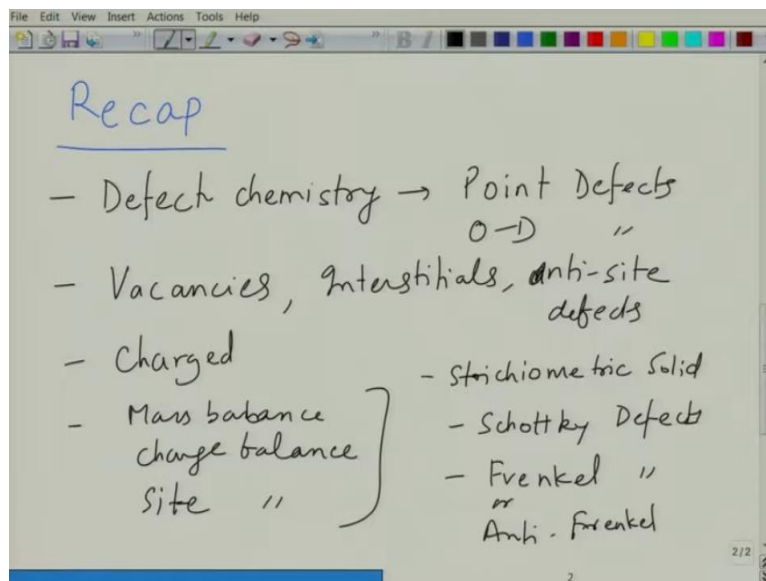 File Edit View Insert Actions Tools Help
Recap
- Defect chemistry → Point Defects
O-D "
- Vacancies, Interstitials, Anti-site
defects
- Charged
- Mass babance
charge balance
Site "
- Stoichiometric Solid
- Schottky Defects
- Frenkel "
or
Anti-Frenkel
2/2
2